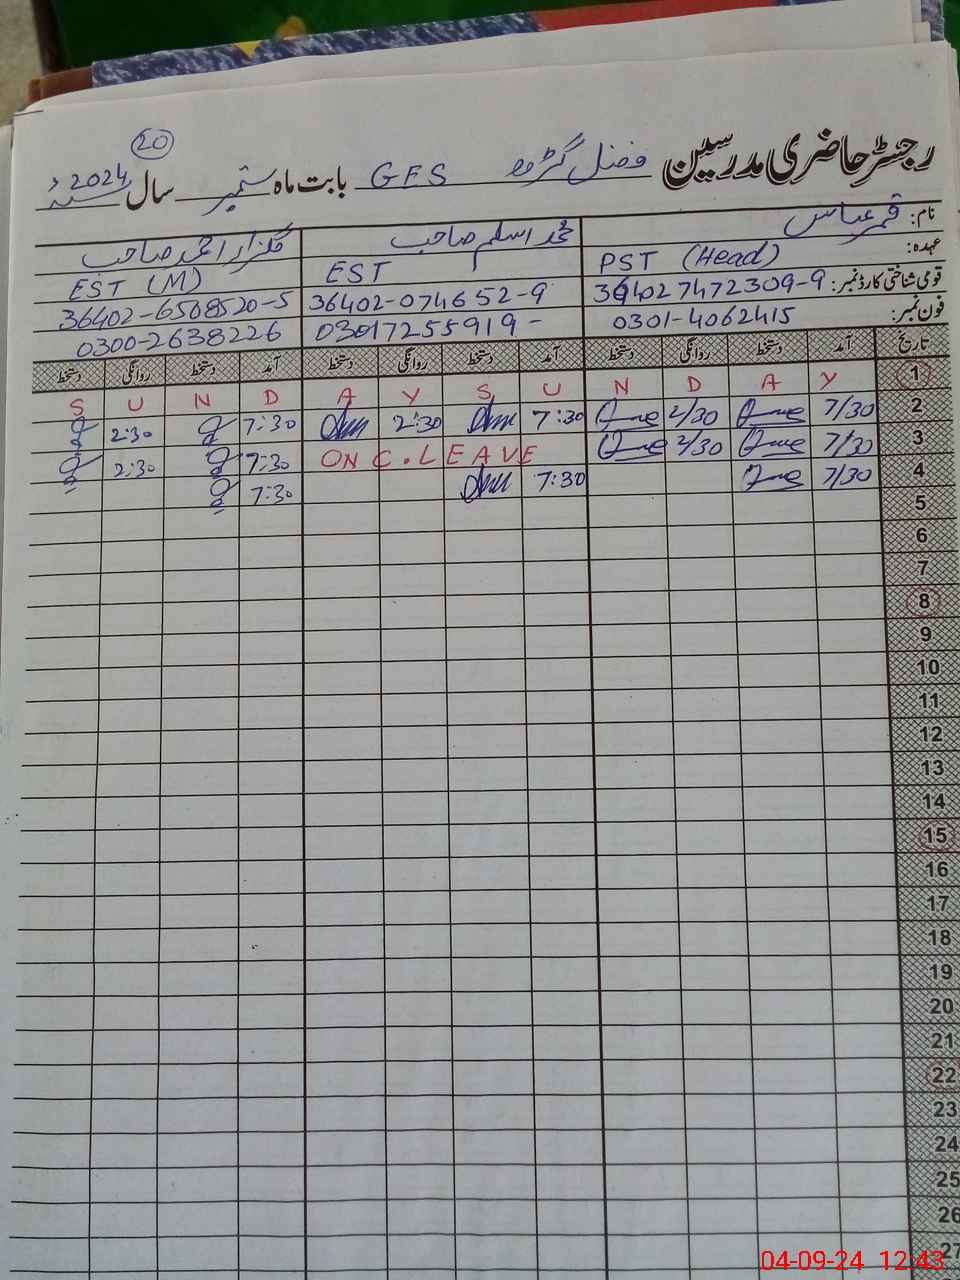 20
رجسٹر حاضری مدرسین فضل گڑھ GES بابت ماہ ستمبر سال 2024ء
نام: قمر عباس محمد اسلم صاحب گلزار احمد صاحب
عہدہ: PST (Head) EST EST (M)
قومی شناختی کارڈ نمبر: 364027472309-9 36402-074652-9 36402-6568520-5
فون نمبر: 0301-4062415 03017255919- 0300-2638226
تاریخ آمد دستخط روانگی دستخط آمد دستخط روانگی دستخط آمد دستخط روانگی دستخط
S U N D A Y S U N D A Y 1
2:30 7:30 2:30 7:30 2/30 7/30 2
2:30 7:30 ON C.LEAVE 2/30 7/30 3
7:30 7:30 7/30 4
5
6
7
8
9
10
11
12
13
14
15
16
17
18
19
20
21
22
23
24
25
26
27
04-09-24 12:43